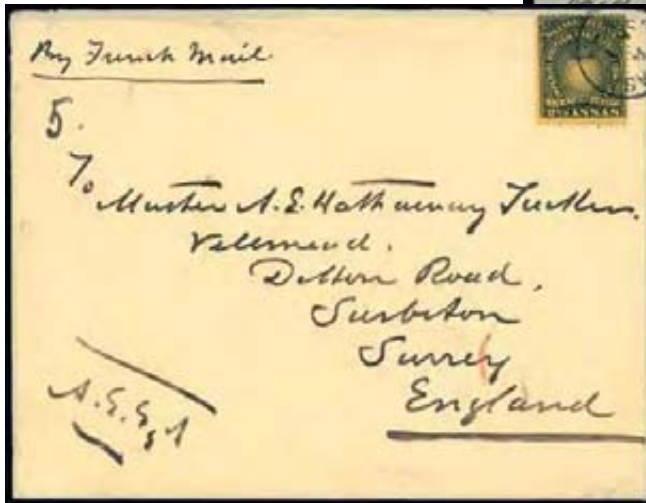 By French Mail
5.
To
Master A. E. Hathaway Tucker.
Velemead.
Ditton Road,
Surbiton
Surrey
England
ANNAS